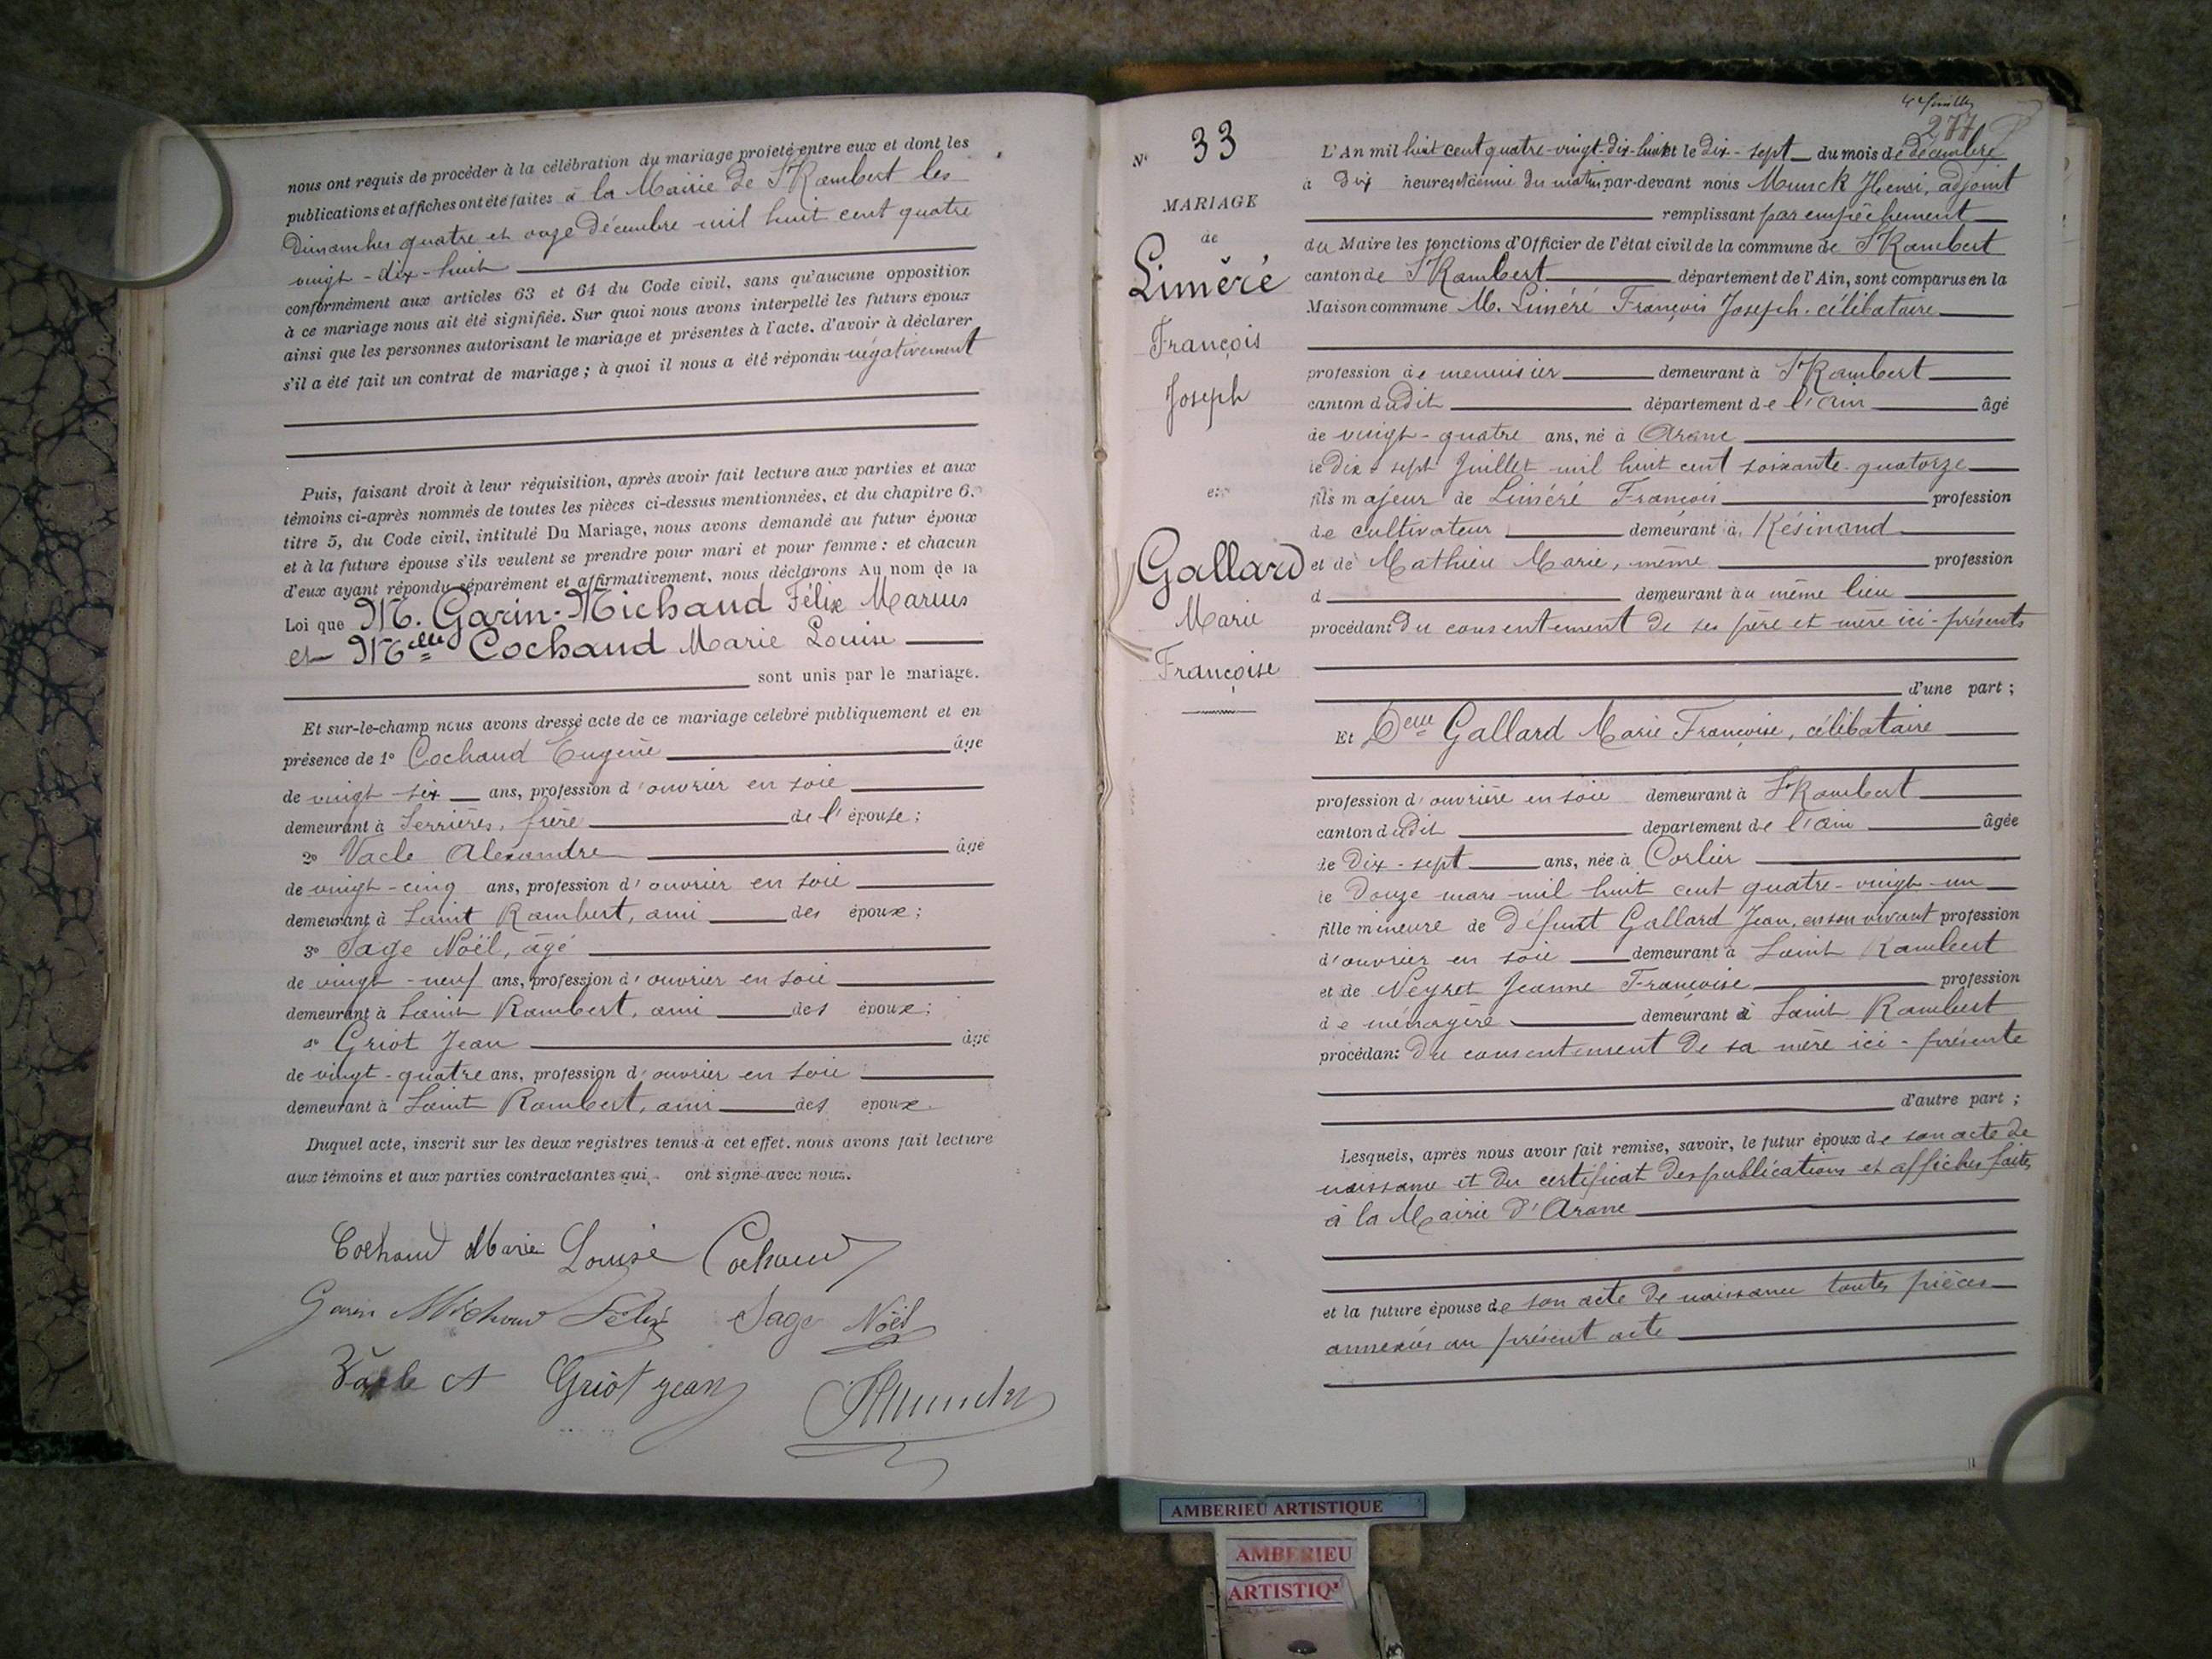 nous ont requis de procéder à la célébration du mariage projeté entre eux et dont les
publications et affiches ont été faites à la Mairie de St Rambert les
Dimanches quatre et onze Décembre mil huit cent quatre
vingt-dix-huit
conformément aux articles 63 et 64 du Code civil, sans qu'aucune opposition
à ce mariage nous ait été signifiée. Sur quoi nous avons interpellé les futurs époux
ainsi que les personnes autorisant le mariage et présentes à l'acte, d'avoir à déclarer
s'il a été fait un contrat de mariage ; à quoi il nous a été répondu négativement
Puis, faisant droit à leur réquisition, après avoir fait lecture aux parties et aux
témoins ci-après nommés de toutes les pièces ci-dessus mentionnées, et du chapitre 6,
titre 5, du Code civil, intitulé Du Mariage, nous avons demandé au futur époux
et à la future épouse s'ils veulent se prendre pour mari et pour femme : et chacun
d'eux ayant répondu séparément et affirmativement, nous déclarons Au nom de la
Loi que M. Garin-Michaud Félix Marius
et Melle Cochaud Marie Louise
sont unis par le mariage.
Et sur-le-champ nous avons dressé acte de ce mariage célébré publiquement et en
présence de 1° Cochaud Eugène âgé
de vingt-six ans, profession d'ouvrier en soie
demeurant à Serrières, frère de l'épouse ;
2° Vacle Alexandre âgé
de vingt-cinq ans, profession d'ouvrier en soie
demeurant à Saint Rambert, ami des époux ;
3° Sage Noël, âgé
de vingt-neuf ans, profession d'ouvrier en soie
demeurant à Saint Rambert, ami des époux ;
4° Griot Jean âgé
de vingt-quatre ans, profession d'ouvrier en soie
demeurant à Saint Rambert, ami des époux.
Duquel acte, inscrit sur les deux registres tenus à cet effet, nous avons fait lecture
aux témoins et aux parties contractantes qui ont signé avec nous.
Cochaud Marie Louise Cochaud
Garin Michaud Félix Sage Noël
Vacle A Griot jean
HMunck
4e feuillet
277
N° 33
MARIAGE
de
Liméré
François
Joseph
et
Gallard
Marie
Françoise
L'An mil huit cent quatre-vingt-dix-huit le dix-sept du mois de décembre
à dix heures et demie du matin par-devant nous Munck Henri, adjoint
remplissant par empêchement
du Maire les fonctions d'Officier de l'état civil de la commune de St Rambert
canton de St Rambert département de l'Ain, sont comparus en la
Maison commune M. Liméré François Joseph, célibataire
profession de menuisier demeurant à St Rambert
canton dudit département de l'Ain âgé
de vingt-quatre ans, né à Aranc
le dix-sept Juillet mil huit cent soixante-quatorze
fils majeur de Liméré François profession
de cultivateur demeurant à Résinand
et de Mathieu Marie, même profession
d demeurant au même lieu
procédant du consentement de ses père et mère ici-présents
d'une part ;
Et Delle Gallard Marie Françoise, célibataire
profession d'ouvrière en soie demeurant à St Rambert
canton dudit département de l'Ain âgée
de dix-sept ans, née à Corlier
le douze mars mil huit cent quatre-vingt-un
fille mineure de défunt Gallard Jean, en son vivant profession
d'ouvrier en soie demeurant à Saint Rambert
et de Neyret Jeanne Françoise profession
de ménagère demeurant à Saint Rambert
procédant du consentement de sa mère ici-présente
d'autre part ;
Lesquels, après nous avoir fait remise, savoir, le futur époux de son acte de
naissance et du certificat des publications et affiches faites
à la Mairie d'Aranc
et la future épouse de son acte de naissance toutes pièces
annexées au présent acte
AMBERIEU ARTISTIQUE
AMBERIEU
ARTISTIQ